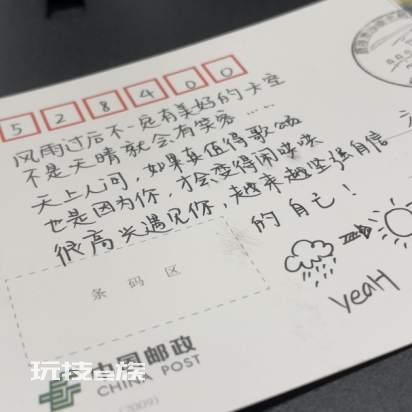 528400
风雨过后不一定有美好的天空
不是天晴就会有笑容……
天上人间，如果真值得歌颂
也是因为你，才会变得闹哄哄
很高兴遇见你，越来越坚强自信
的自己！
条码区
yeaH
中国邮政
CHINA POST
(2009)
玩技e族